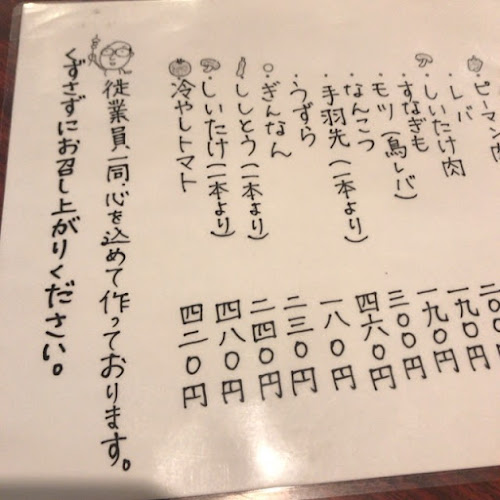 ピーマン肉
・レバ
しいたけ肉 二〇〇
・すなぎも 一九〇円
・モツ(鳥レバ) 一九〇円
・なんこつ 三〇〇円
・手羽先(一本より) 四六〇円
・うずら 一八〇円
ぎんなん 二三〇円
ししとう(一本より) 二四〇円
しいたけ(一本より) 四八〇円
冷やしトマト 四二〇円
従業員一同、心を込めて作っております。
くずさずにお召し上がりください。